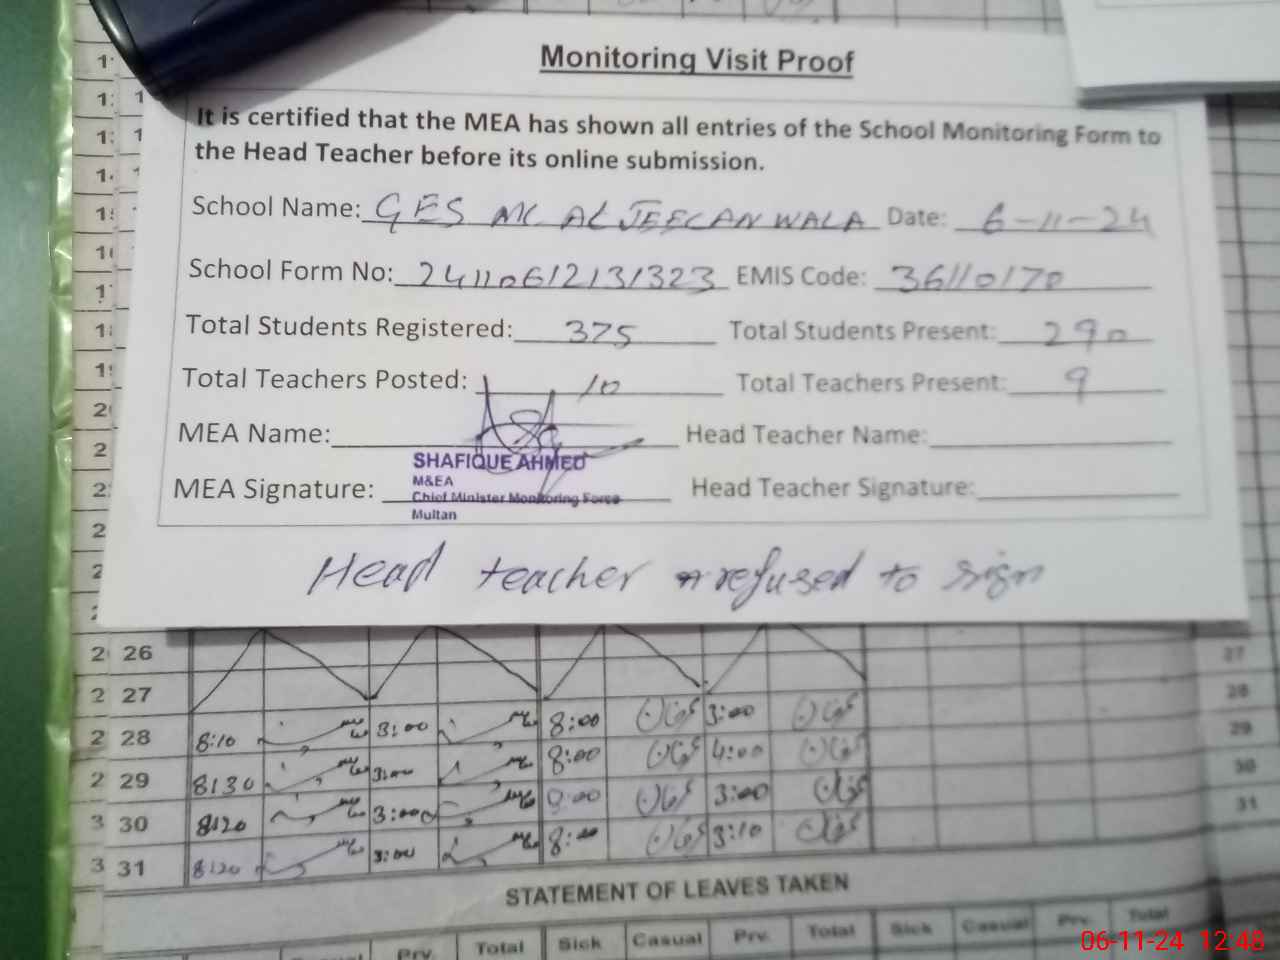 Monitoring Visit Proof
It is certified that the MEA has shown all entries of the School Monitoring Form to
the Head Teacher before its online submission.
School Name: GES MC ALJEELAN WALA Date: 6-11-24
School Form No: 24110612131323 EMIS Code: 36110170
Total Students Registered: 375 Total Students Present: 290
Total Teachers Posted: 10 Total Teachers Present: 9
MEA Name: Head Teacher Name:
SHAFIQUE AHMED
M&EA
MEA Signature: Chief Minister Monitoring Force Head Teacher Signature:
Multan
Head teacher refused to sign
26
27
28 8:10 3:00 8:00 3:00
29 8:30 3:00 8:00 4:00
30 8:20 3:00 3:00
31 8:20 3:00 8:00 3:10
STATEMENT OF LEAVES TAKEN
Prv. Total Sick Casual Prv. Total Sick Casual Prv. Total
06-11-24 12:48